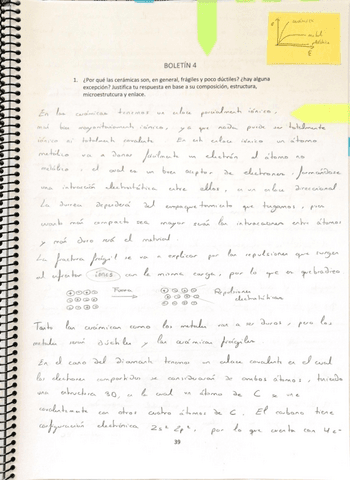 cerámico
metal
plástico
E
BOLETÍN 4
1. ¿Por qué las cerámicas son, en general, frágiles y poco dúctiles? ¿hay alguna
excepción? Justifica tu respuesta en base a su composición, estructura,
microestructura y enlace.
En las cerámicas tenemos un enlace parcialmente iónico,
mayoritariamente iónico, ya que nada puede ser totalmente
iónico ni totalmente covalente. En este enlace iónico un átomo
metálico va a donar fácilmente un electrón al átomo no
metálico, el cual es un buen aceptor de electrones, formándose
una interacción electrostática entre ellos, es un enlace direccional
La dureza dependerá del empaquetamiento que tengamos, pues
cuanto más compacto sea mayor serán las interacciones entre átomos
y más duro será el material
La fractura frágil se va a explicar por las repulsiones que surgen
al enfrentar iones con la misma carga, por lo que es quebradizo
Fuerza
Repulsiones
electrostáticas
Tanto las cerámicas como los metales van a ser duros, pero los
metales son dúctiles y las cerámicas frágiles
En el caso del Diamante tenemos un enlace covalente en el cual
los electrones compartidos se considerarán de ambos átomos, teniendo
una estructura 3D, en la cual un átomo de C se une
covalentemente con otros cuatro átomos de C. El carbono tiene
configuración electrónica 2s² 2p², por lo que cuenta con 4e⁻
39